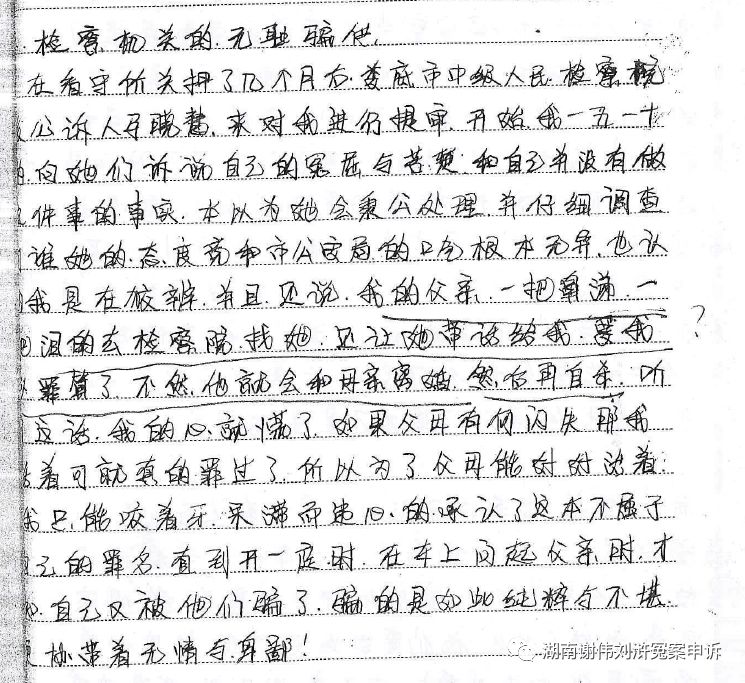 检察机关的无耻骗供.
在看守所关押了几个月后.娄底市中级人民.检察院
公诉人 晓慧.来对我进行提审.开始我一五一十
的向她们诉说自己的冤屈与苦楚.和自己并没有做
件事的事实.本以为她会秉公处理.并仔细调查
谁她的.态度竟和市公安局的口气根本无异.也认
我是在狡辩.并且.还说.我的父亲.一把鼻涕.一
泪的去检察院.找她.还让她带话给我.要我
罪算了.不然.他就会和母亲离婚.然后再自杀.听
这话.我的心就慌了.如果父母有何闪失那我
着可就真的罪过了.所以为了父母能好好活着.
我只能咬着牙.呆滞而违心.的承认了这本不属于
己的罪名.直到开一庭时.在车上问起父亲时.才
自己又被他们骗了.骗的是如此纯粹与不堪.
带着无情与卑鄙!
?
湖南谢伟刘浒冤案申诉